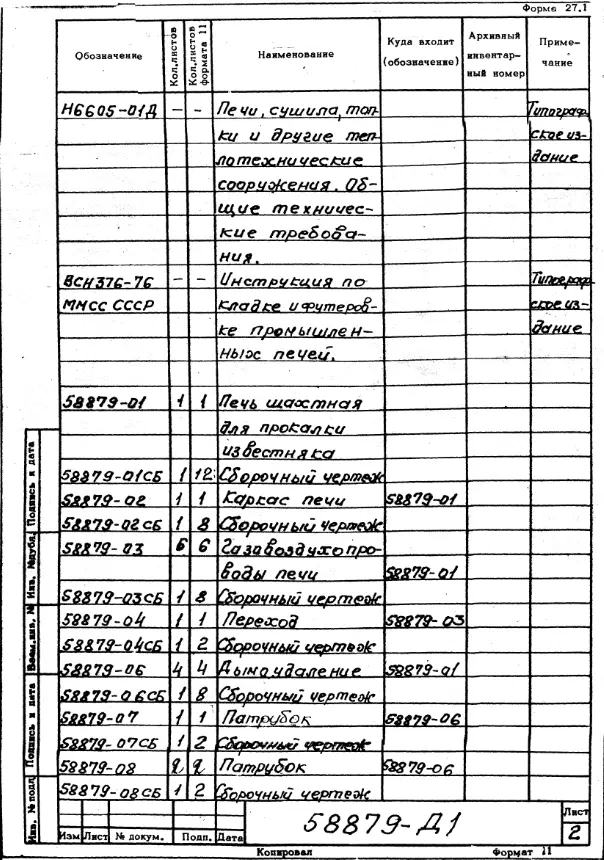 Форма 27.1
Обозначение Кол.листов Кол.листов формата 11 Наименование Куда входит (обозначение) Архивный инвентар- ный номер Приме- чание
Н6605-01Д - - Печи, сушила, топ- Типограф
ки и другие теп- ское из-
лотехнические дание
сооружения. Об-
щие техничес-
кие требова-
ния.
ВСН376-76 - - Инструкция по Типограф
ММСС СССР кладке и футеров- ское из-
ке промышлен- дание
ных печей.
58879-01 1 1 Печь шахтная
для прокалки
известняка
58879-01СБ 1 12 Сборочный чертеж
58879-02 1 1 Каркас печи 58879-01
58879-02СБ 1 8 Сборочный чертеж
58879-03 6 6 Газовоздухопро-
воды печи 58879-01
58879-03СБ 1 8 Сборочный чертеж
58879-04 1 1 Переход 58879-03
58879-04СБ 1 2 Сборочный чертеж
58879-06 4 4 Дымоудаление 58879-01
58879-06СБ 1 8 Сборочный чертеж
58879-07 1 1 Патрубок 58879-06
58879-07СБ 1 2 Сборочный чертеж
58879-08 2 2 Патрубок 58879-06
58879-08СБ 1 2 Сборочный чертеж
Инв. № подл. Подпись и дата Взам.инв. № Инв. №дубл. Подпись и дата
Изм Лист № докум. Подп. Дата
58879-Д1
Лист
2
Копировал Формат 11